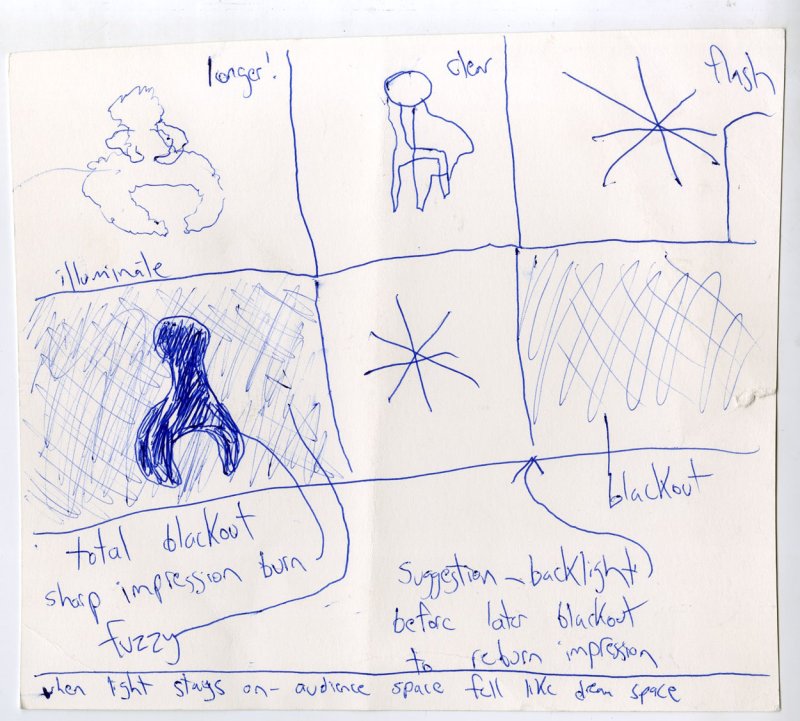 longer!
clear
flash
illuminate
blackout
total blackout
sharp impression burn
fuzzy
suggestion - backlight
before later blackout
to reburn impression
when light stays on - audience space fell like dream space